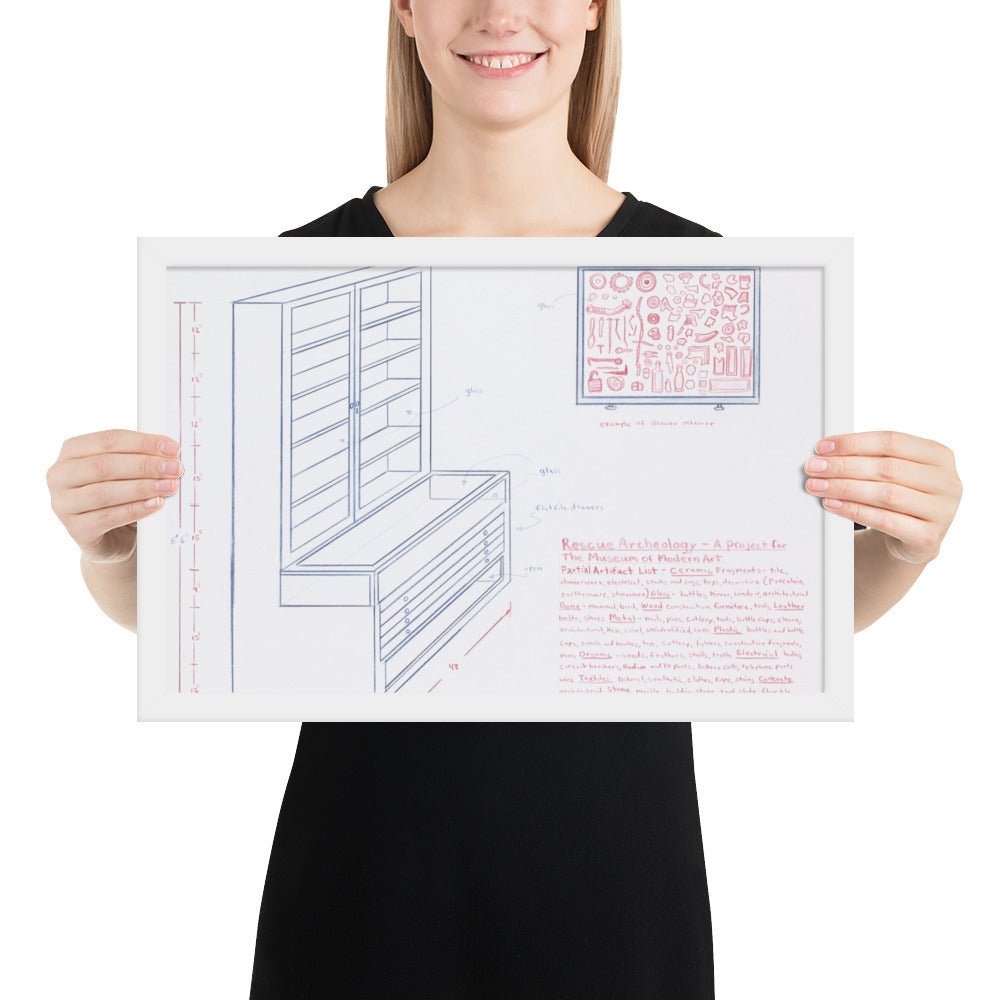 12"
12"
12"
15"
15"
15"
6'6"
glass
glass
flat file drawers
open
48
glass
example of drawer interior
Rescue Archeology - A project for
The Museum of Modern Art
Partial Artifact List - Ceramic Fragments - tile,
electrical, toys, decorative (porcelain,
earthenware, stoneware) Glass - bottles, mirror, window, architectural
Bone - mammal, bird, Wood construction, furniture, tools Leather
belts, shoes Metal - nails, pipes, cutlery, tools, bottle caps, chain,
architectural, keys, unidentified, cans Plastic bottles and bottle
caps, combs and brushes, toys, cutlery, lighters, construction fragments,
pens Organic - seeds, feathers, shells, teeth Electrical
circuit breakers, Radio and TV parts, battery cells, telephone parts
wire Textiles natural, synthetic, clothes, rope, string Concrete
architectural Stone